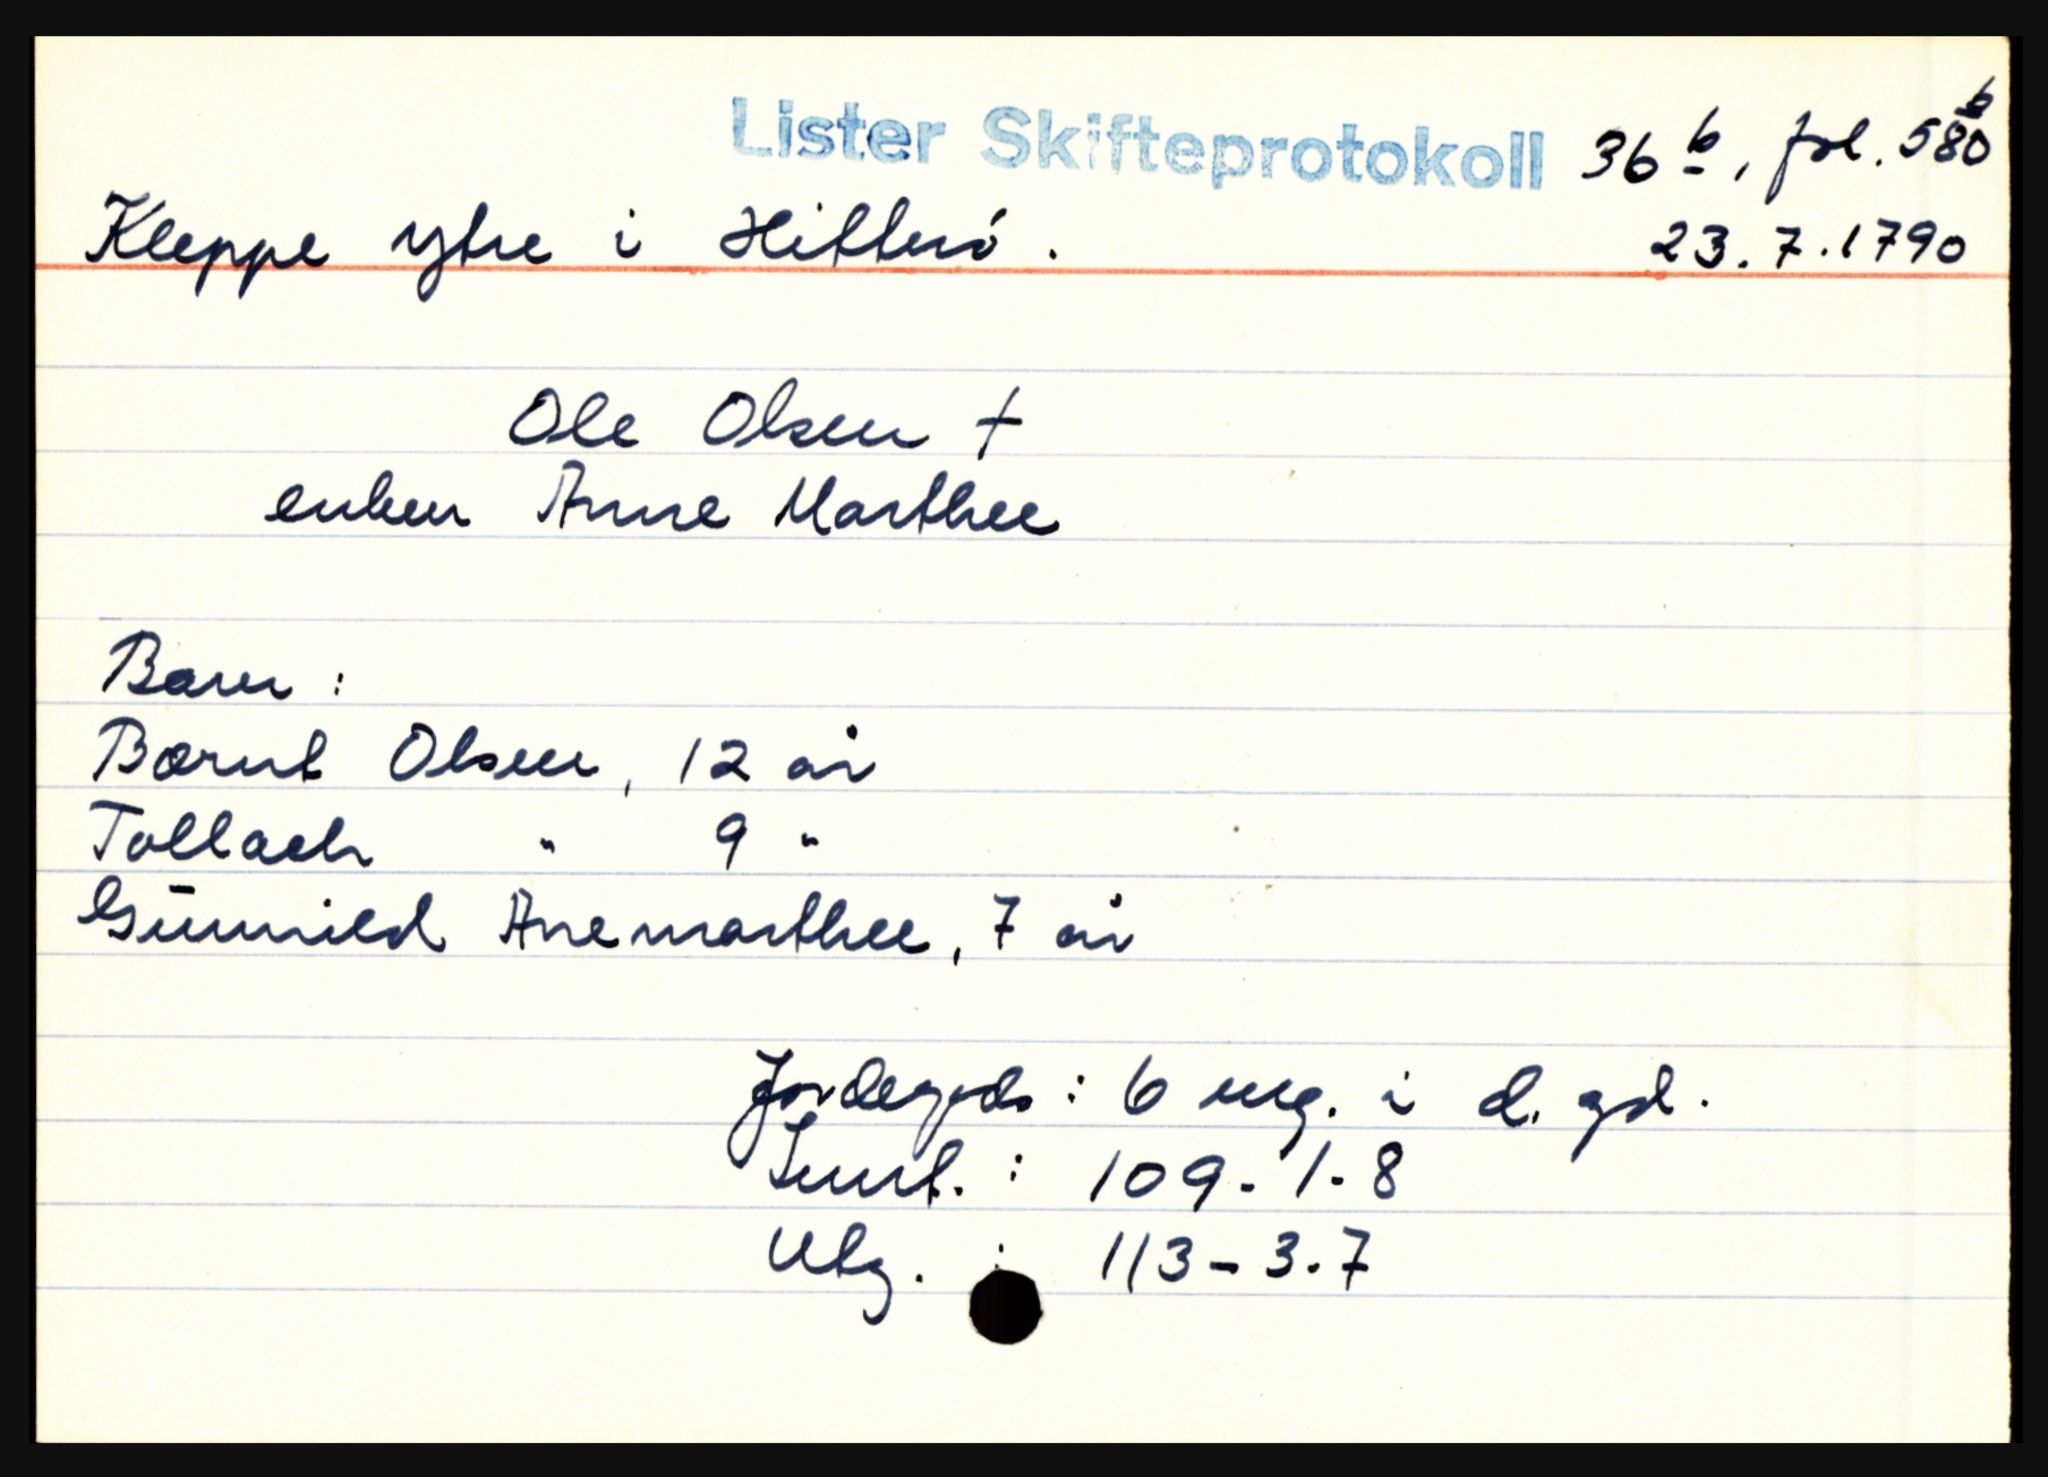 Lister Skifteprotokoll 36 b, fol. 580 b
Kleppe ytre i Hitterö. 23.7.1790
Ole Olsen †
enken Anne Marthee
Barn:
Bernt Olsen, 12 år
Tollach " 9 "
Gunnild Anemarthee, 7 år
Jordegods: 6 mg. i d. gd.
Innt.: 109-1-8
Utg. : 113-3-7